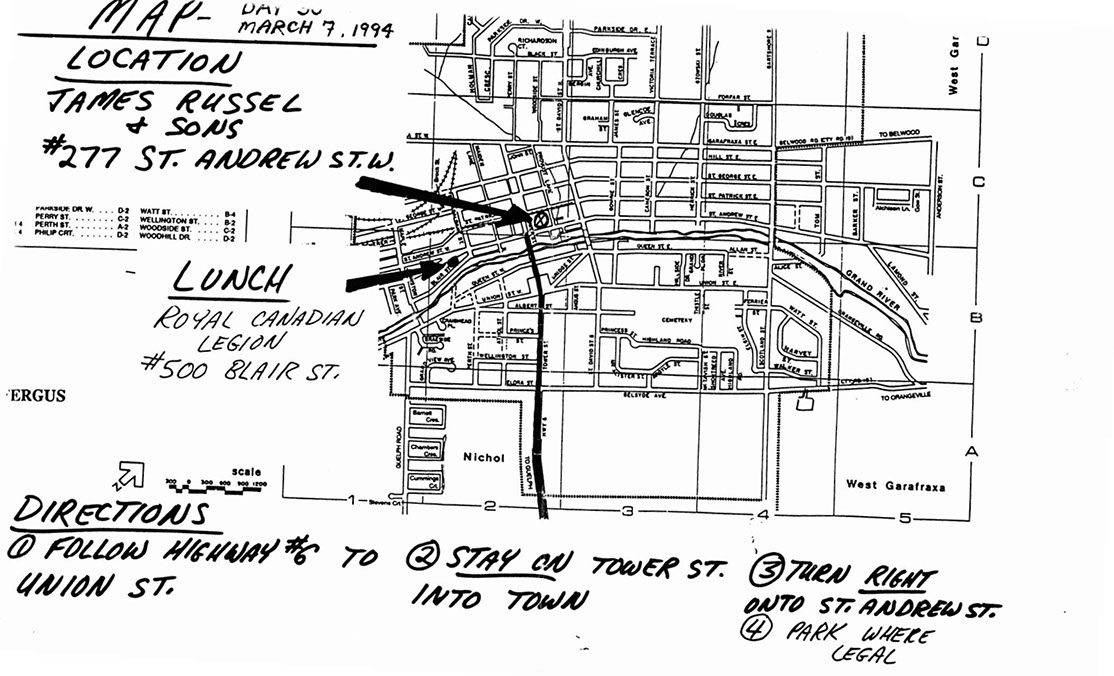 MAP- DAY 30
MARCH 7, 1994
LOCATION
JAMES RUSSEL
& SONS
#277 ST. ANDREW ST. W.
PARKSIDE DR. W. . . . . D-2
PERRY ST. . . . . . . . . C-2
PERTH ST. . . . . . . . . A-2
PHILIP CRT. . . . . . . . D-2
WATT ST. . . . . . . . . . B-4
WELLINGTON ST. . . . . B-2
WOODSIDE ST. . . . . . C-2
WOODHILL DR. . . . . . D-2
LUNCH
ROYAL CANADIAN
LEGION
#500 BLAIR ST.
FERGUS
scale
300 0 300 600 900 1200
PARKSIDE DR. E.
PARKSIDE
DR. W.
RICHARDSON
CT.
BLACK ST.
EDINBURGH AVE
HOLMAN
CRESC.
PERRY ST.
WOODSIDE ST.
ST. DAVID ST. N
CHURCHILL
CRES
VICTORIA TERRACE
GRAHAM
ST
JAMES ST
GLENCOE
AVE.
FORFAR ST.
DOUGLAS
CRES
GARAFRAXA ST. E.
BELWOOD RD. (CTY RD. 19)
TO BELWOOD
JOHN ST.
HILL ST. E.
ST. GEORGE ST. E.
ST. PATRICK ST. E.
ST. ANDREW ST. E
ST. ANDREW ST. W
BLAIR ST.
QUEEN ST. W.
QUEEN ST. E.
ALLAN ST.
ALICE ST.
TOM
ST.
BAKER ST.
Atchison Ln.
Gow St.
ANDERSON ST.
LAMOND ST.
GRAND RIVER
UNION ST. W
UNION ST. E.
ALBERT ST.
PRINCE'S
ST.
PRINCESS ST
HIGHLAND ROAD
CEMETERY
WELLINGTON ST.
ELORA ST.
TOWER ST.
BELSYDE AVE.
SCOTLAND ST.
WATT ST.
HARVEY
ST.
WALKER ST.
ORANGEVILLE RD.
TO ORANGEVILLE
GUELPH ROAD
Barnell
Cres.
Chambers
Cres.
Cummings
Crt.
Stevens Crt.
Nichol
HWY 6
TO GUELPH
West Gar
West Garafraxa
D
C
B
A
1
2
3
4
5
DIRECTIONS
① FOLLOW HIGHWAY #6 TO
UNION ST.
② STAY ON TOWER ST.
INTO TOWN
③ TURN RIGHT
ONTO ST. ANDREW ST.
④ PARK WHERE
LEGAL